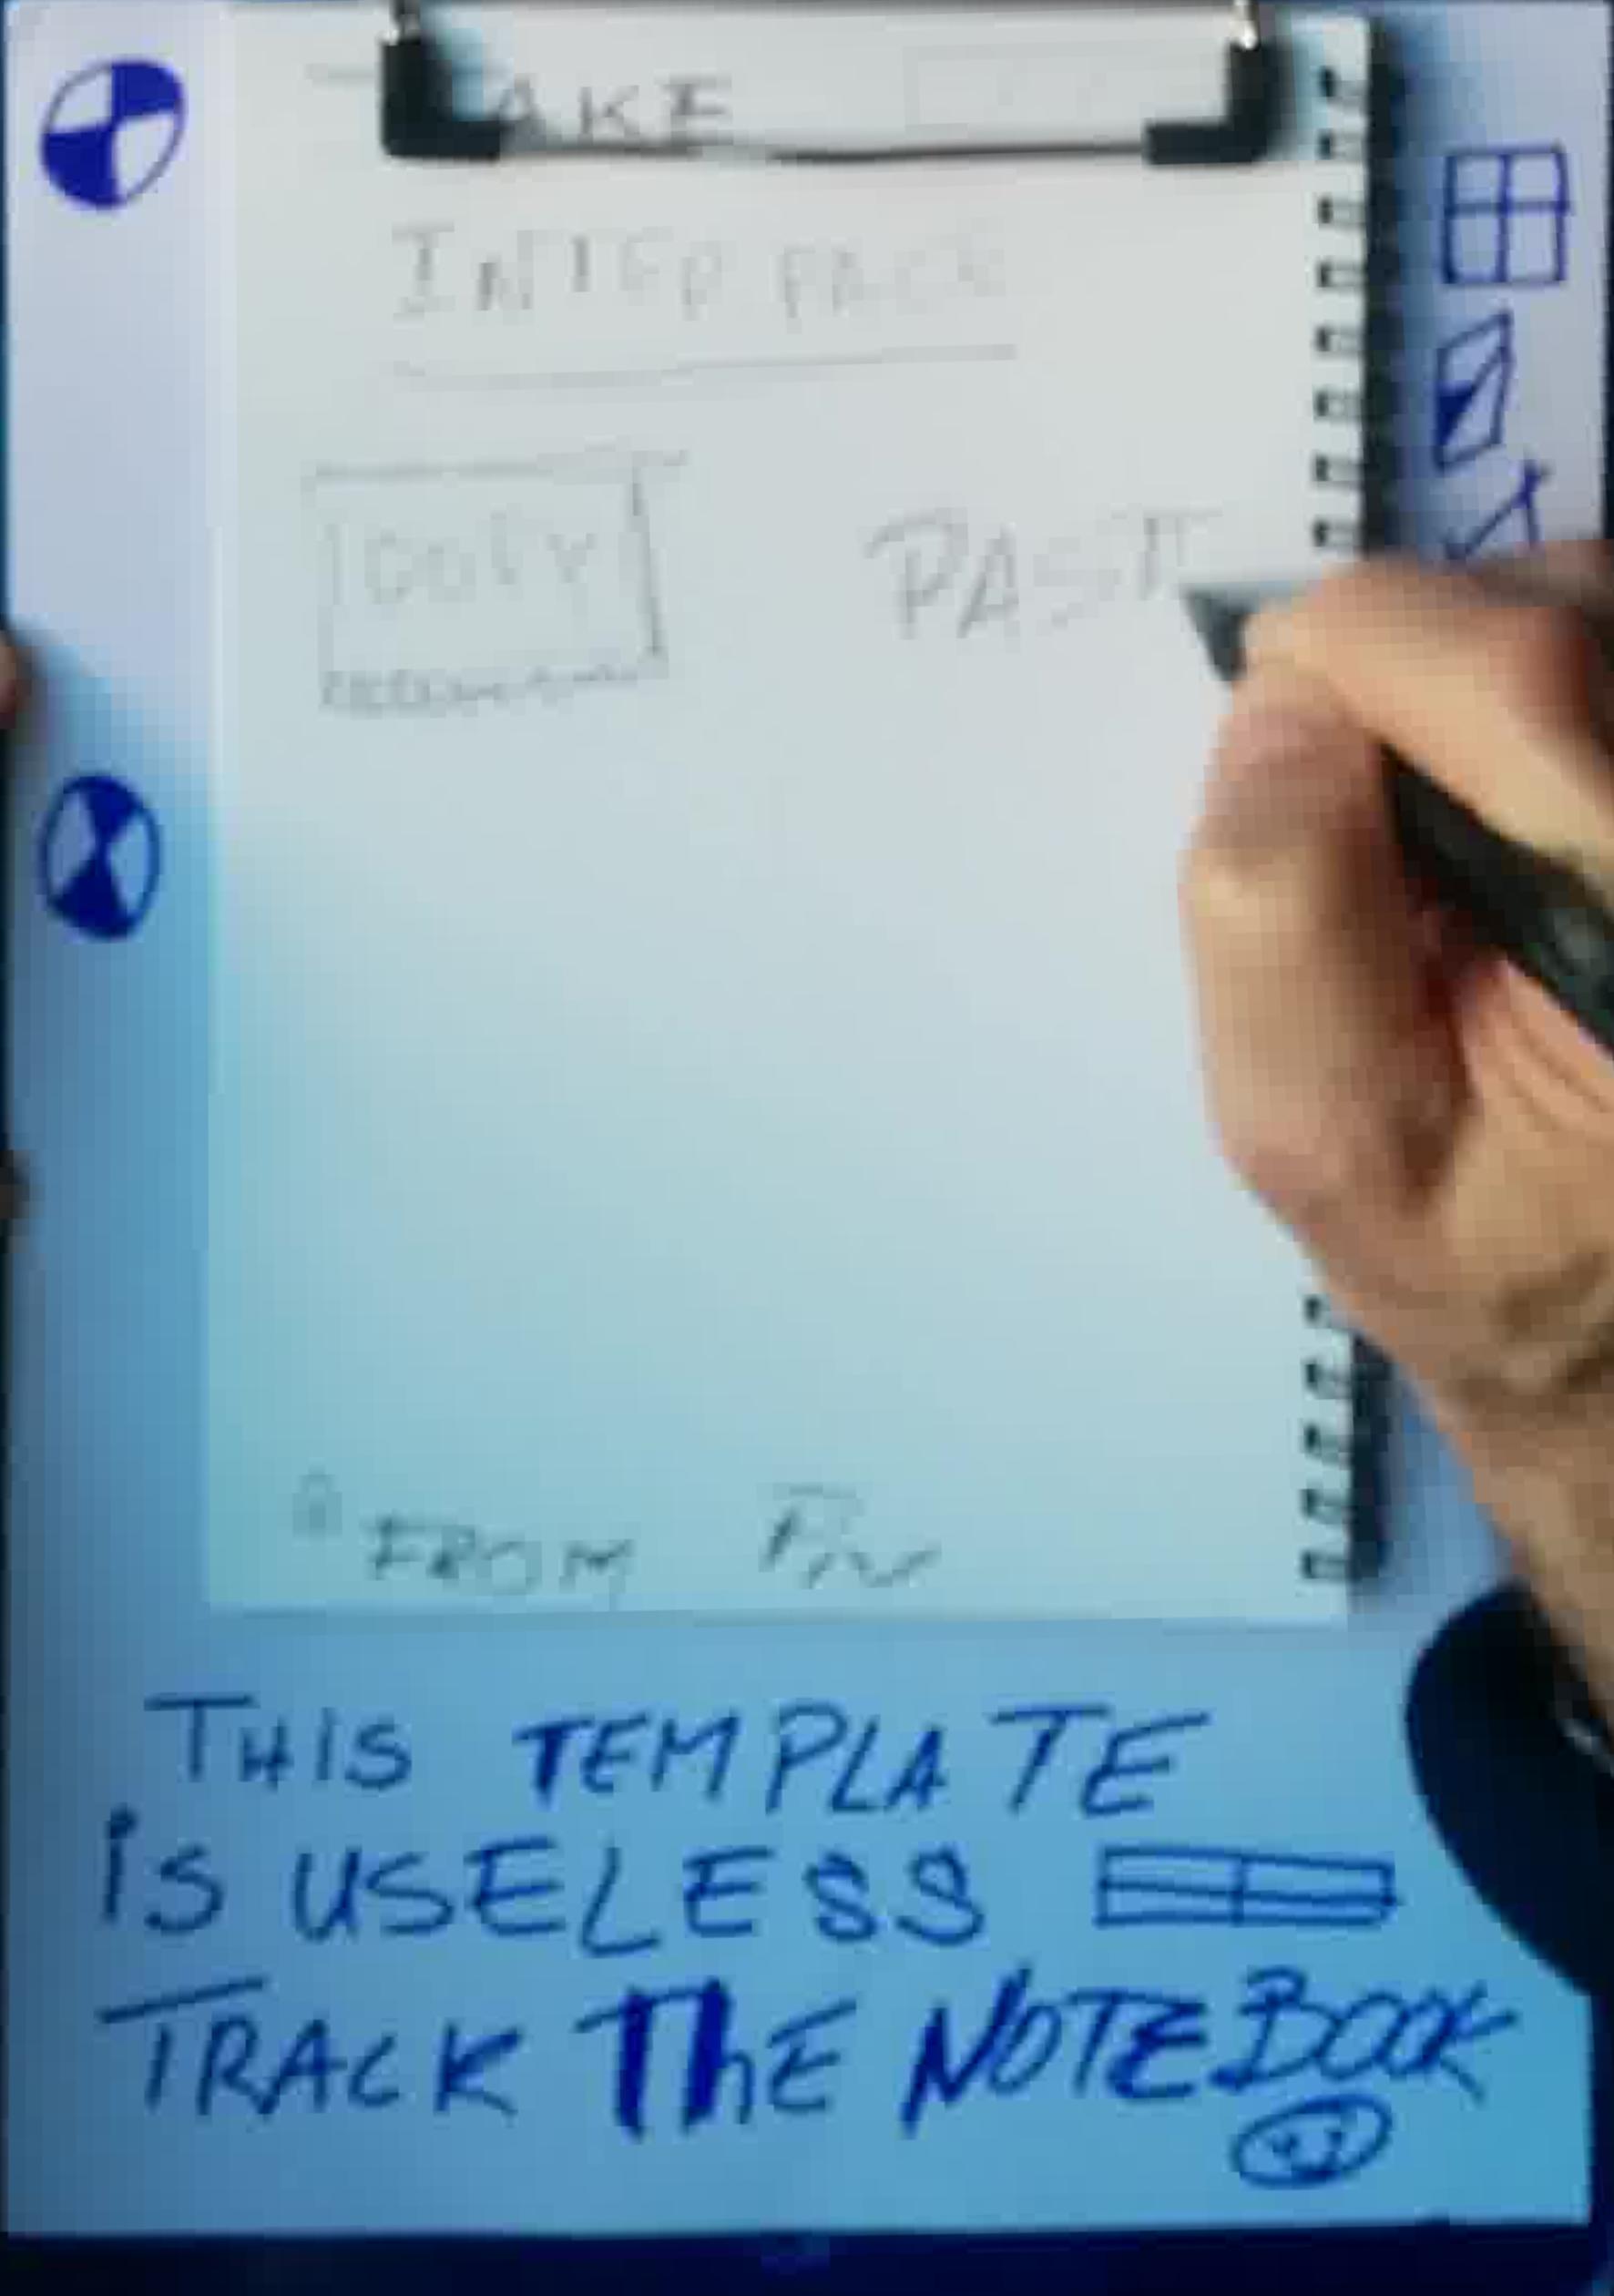 AKE
INTERFACE
COPY PAST
FROM
THIS TEMPLATE
is USELESS
TRACK ThE NOTEBOOK